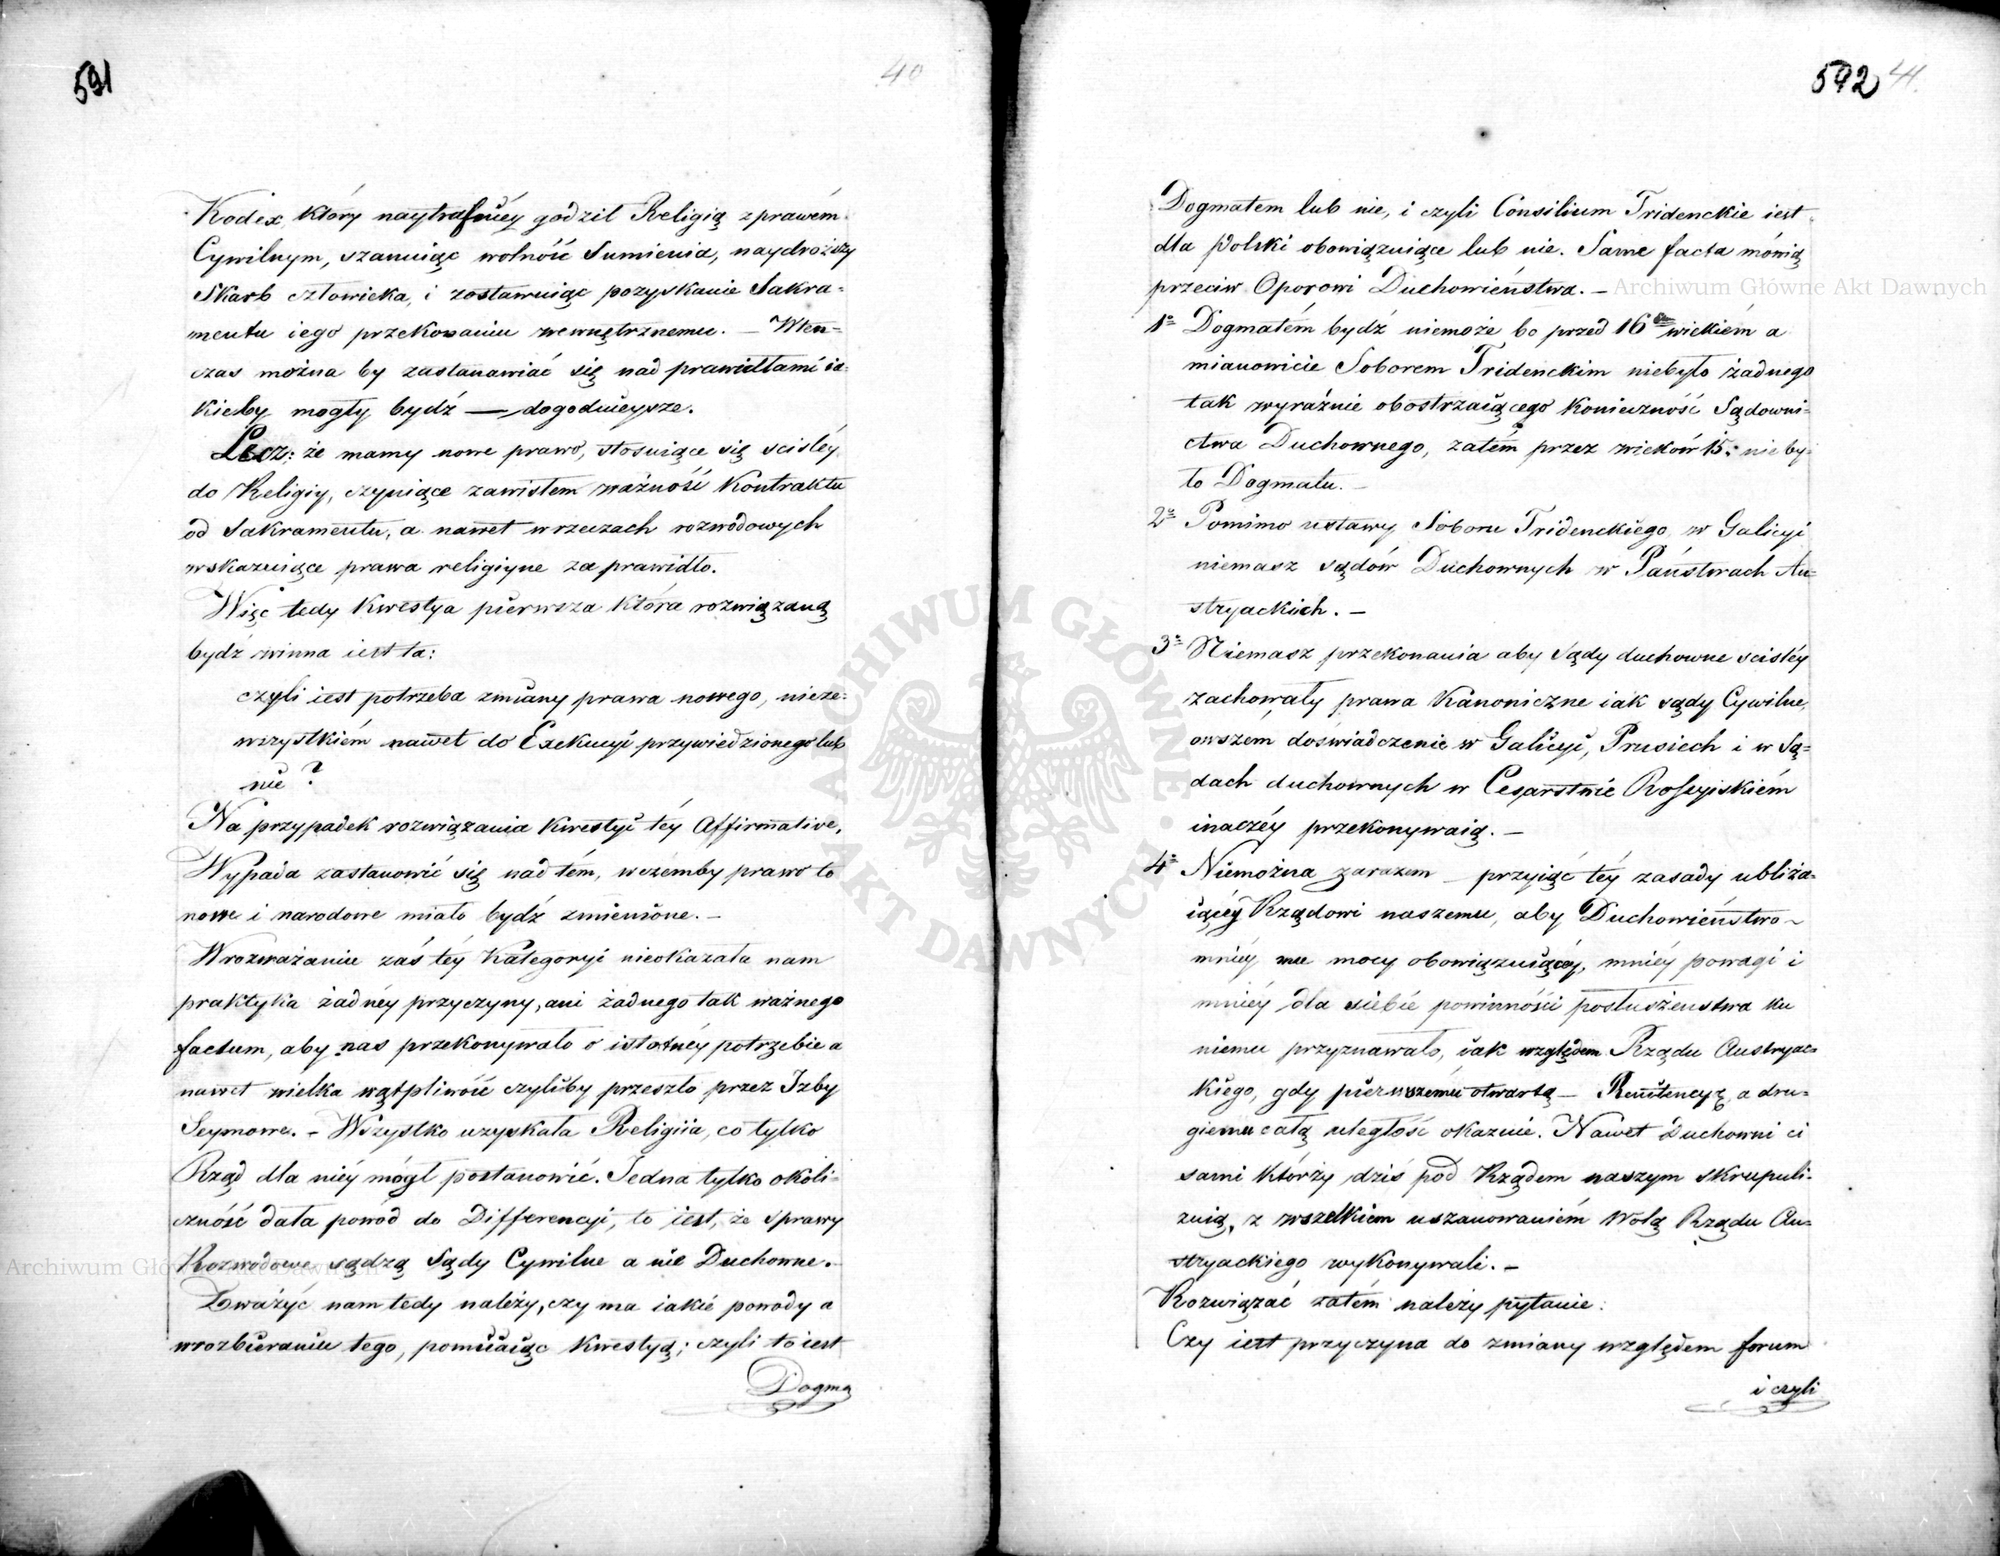 591
40
Kodex, który naytrafniéy godził Religią z prawém
Cywilnym, szanuiąc wolność Sumienia, naydroższy
Skarb człowieka, i zostawuiąc pozyskanie Sakra-
mentu iego przekonaniu wewnętrznemu. — Wten-
czas można by zastanawiać się nad prawidłami ia-
kieby mogły bydź — dogodnieysze.
Lecz: że mamy nowe prawo, stosuiące się scisléy
do Religiy, czyniące zawisłem ważność Kontraktu
od Sakramentu, a nawet w rzeczach rozwodowych
wskazuiące prawa religiyne za prawidło.
Więc tedy Kwestya pierwsza która rozwiązaną
bydź winna iest ta:
czyli iest potrzeba zmiany prawa nowego, nieze-
wszystkiém nawet do Exekucyi przywiedzionego lub
nie?
Na przypadek rozwiązania Kwestyi téy Affirmative,
Wypada zastanowić się nad tém, w czémby prawo to
nowe i narodowe miało bydź zmienione. —
W rozważaniu zaś téy Kategoryi nieokazała nam
praktyka żadnéy przyczyny, ani żadnego tak ważnego
factum, aby nas przekonywało o istotnéy potrzebie a
nawet wielka wątpliwość czyliby przeszło przez Izby
Seymowe. — Wszystko uzyskała Religiia, co tylko
Rząd dla niéy mógł postanowić. Jedna tylko okoli-
czność dała powód do Differencyi, to iest, że sprawy
Rozwodowe sądzą Sądy Cywilne a nie Duchowne.
Zważyć nam tedy należy, czy ma iakié powody a
w rozbieraniu tego, pomiiaiąc Kwestyą; czyli to iest
Dogma
592
41.
Dogmatem lub nie, i czyli Consilium Tridenckie iest
dla Polski obowiązuiące lub nie. Same facta mówią
przeciw Oporowi Duchowieństwa. —
1º Dogmatém bydź niemoże bo przed 16 wiekiém a
mianowicie Soborem Tridenckim niebyło żadnego
tak wyraźnie obostrzaiącego Konieczność Sądowni-
ctwa Duchownego, zatém przez wieków 15: nieby-
ło Dogmatu. —
2º Pomimo ustawy Soboru Tridenckiego w Galicyi
niemasz sądów Duchownych w Państwach Au-
stryackich. —
3º Niemasz przekonania aby Sądy duchowne scisléy
zachowały prawa Kanoniczne iak sądy Cywilne,
owszem doswiadczenie w Galicyi, Prusiech i w Są-
dach duchownych w Cesarstwie Rossyiskiém
inaczéy przekonywaią. —
4º Niemożna zarazem — przyiąć téy zasady ubliża-
iącéy Rządowi naszemu, aby Duchowieństwo
mniéy mu mocy obowiązuiącéy, mniéy powagi i
mniéy dla siebie powinności posłuszeństwa ku
niemu przyznawało, iak względem Rządu Austryac-
kiego, gdy pierwszému otwartą — Renitencyę, a dru-
giemu całą uległość okazuie. Nawet Duchowni ci
sami którzy dziś pod Rządem naszym skrupuli-
zuią, z wszelkiem uszanowaniém Wolą Rządu Au-
stryackiego wykonywali. —
Rozwiązać zatém należy pytanie:
Czy iest przyczyna do zmiany względem forum
i czyli
Archiwum Główne Akt Dawnych
Archiwum Główne Akt Dawnych
ARCHIWUM GŁÓWNE · AKT DAWNYCH ·